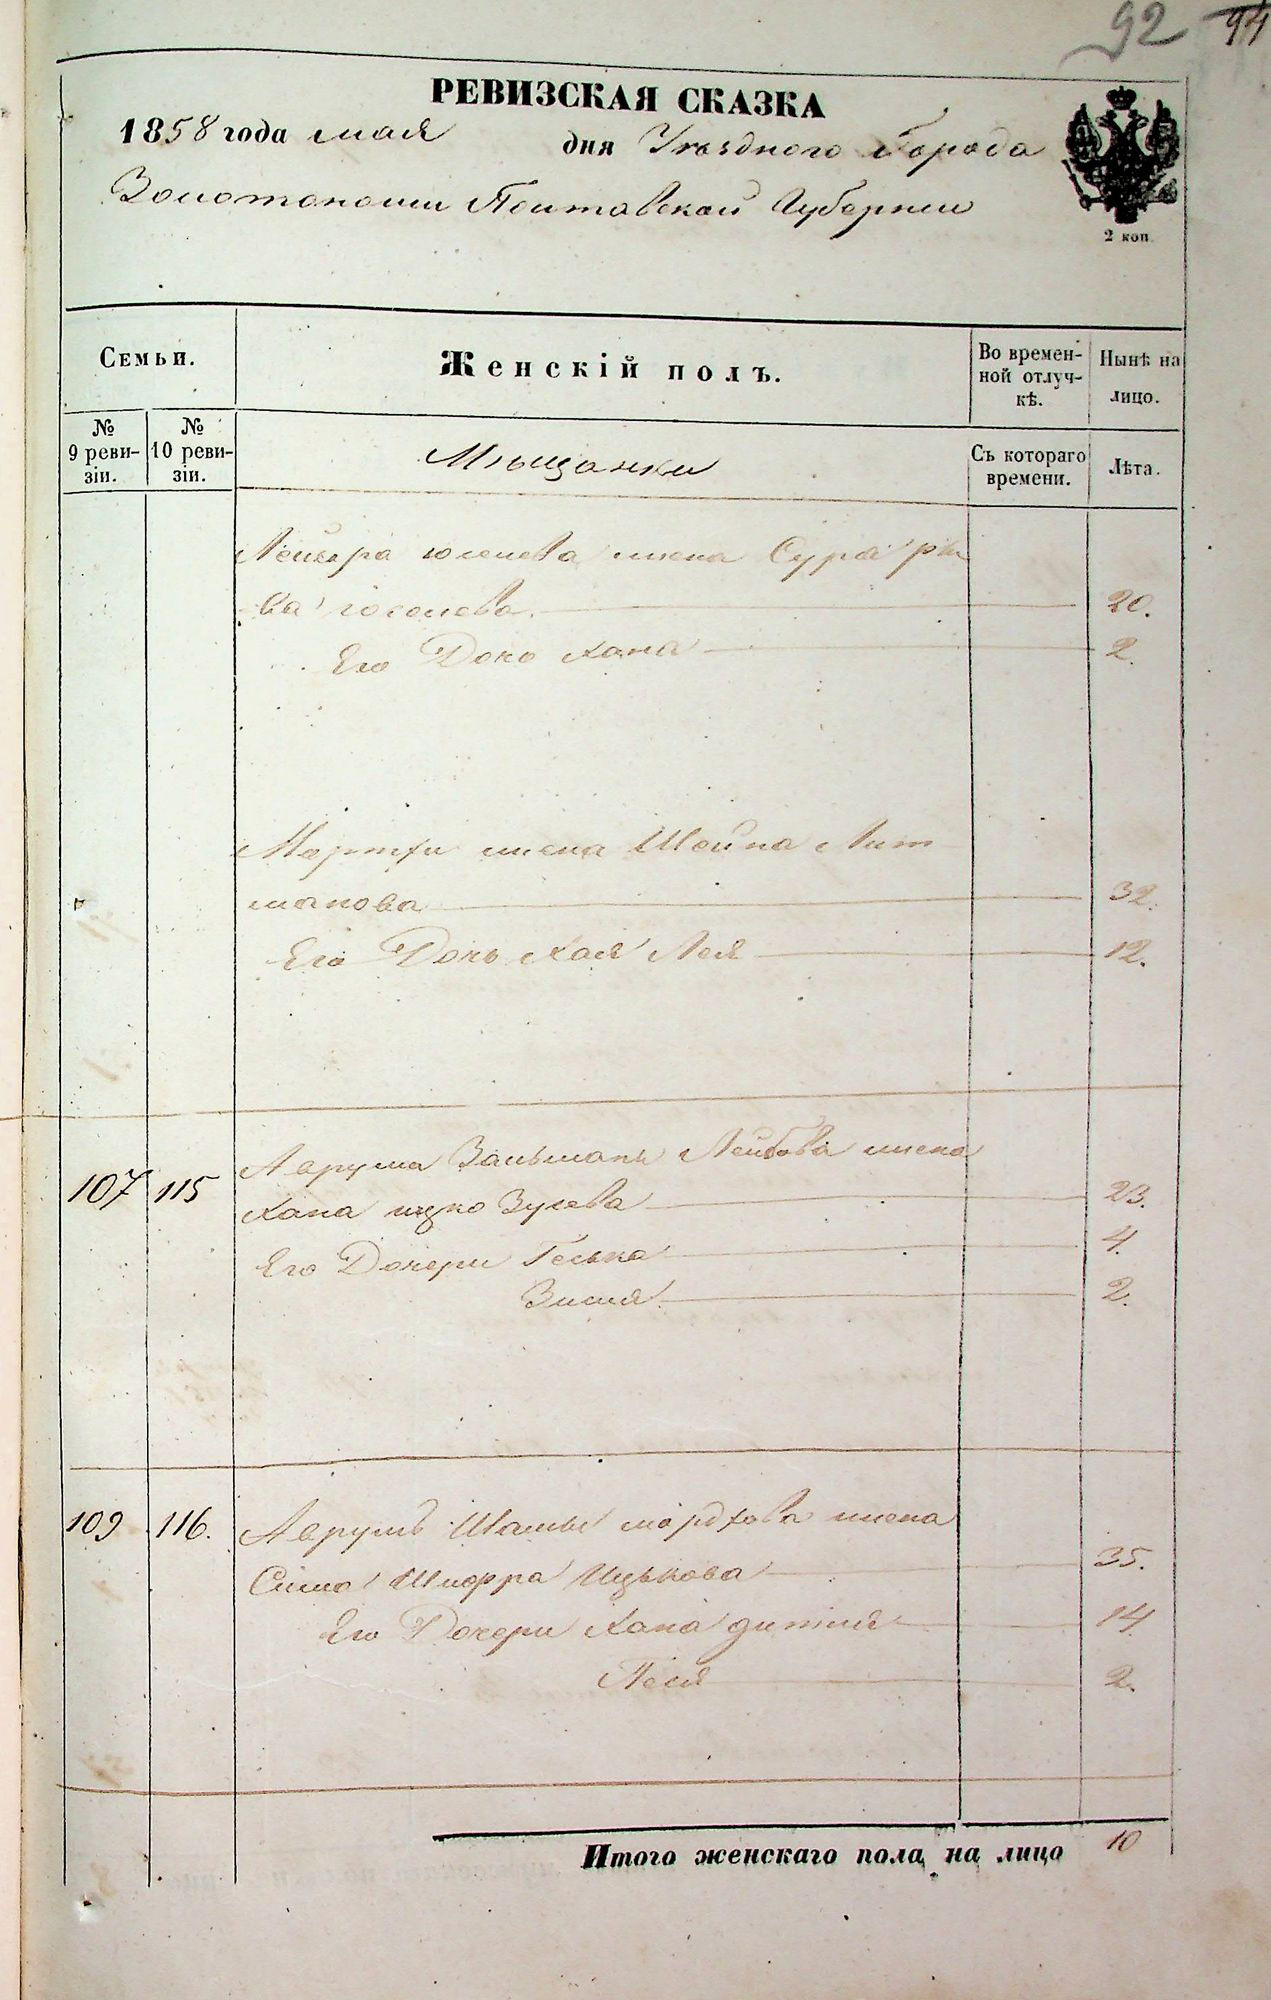 92 94
РЕВИЗСКАЯ СКАЗКА
1858 года мая дня Уѣзднаго Города
Золотоноши Полтавской Губерніи
2 коп.
Семьи.
Женскій полъ.
Во времен-
ной отлуч-
кѣ.
Нынѣ на
лицо.
№
9 реви-
зіи.
№
10 реви-
зіи.
Мѣщанки
Съ котораго
времени.
Лѣта.
Лейзера жена Сура Рив
ка 20.
Его Дочь Хана 2.
Мортхи жена Шейна Лит
манова 32.
Его Дочь Хая Лея 12.
107 115 Аврума Зальмана Лейбова жена
Хана Ицко Зусева 23.
4.
Его Дочери Геська
Зисля 2.
109 116. Аврумъ мордхова жена
Сима Шифра Ицькова 35.
Его Дочери Хана 14
Песя 2.
Итого женскаго пола на лицо 10